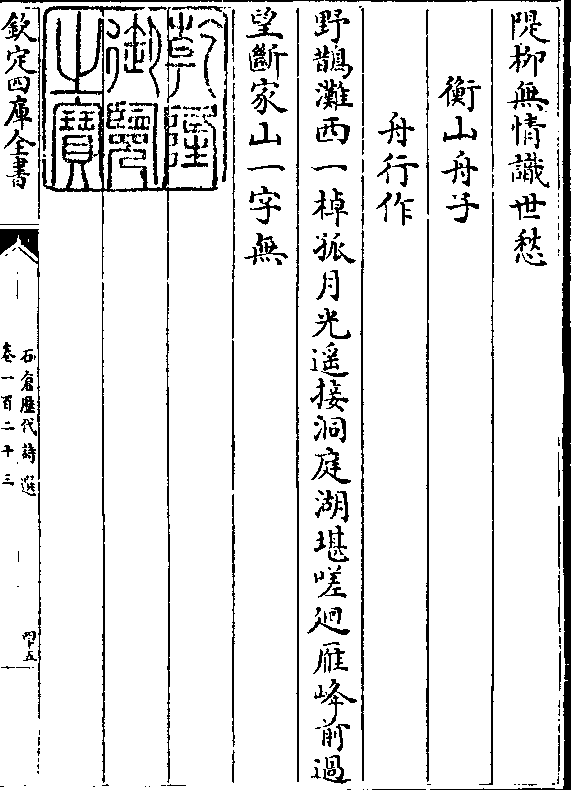 隄柳無情識世愁
衡山舟子
舟行作
野鵲灘西一棹孤月光遥接洞庭湖堪嗟廻雁峰前過
望斷家山一字無
乾隆
御覽
之寶
欽定四庫全書
石倉歷代詩選
卷一百二十三
四五